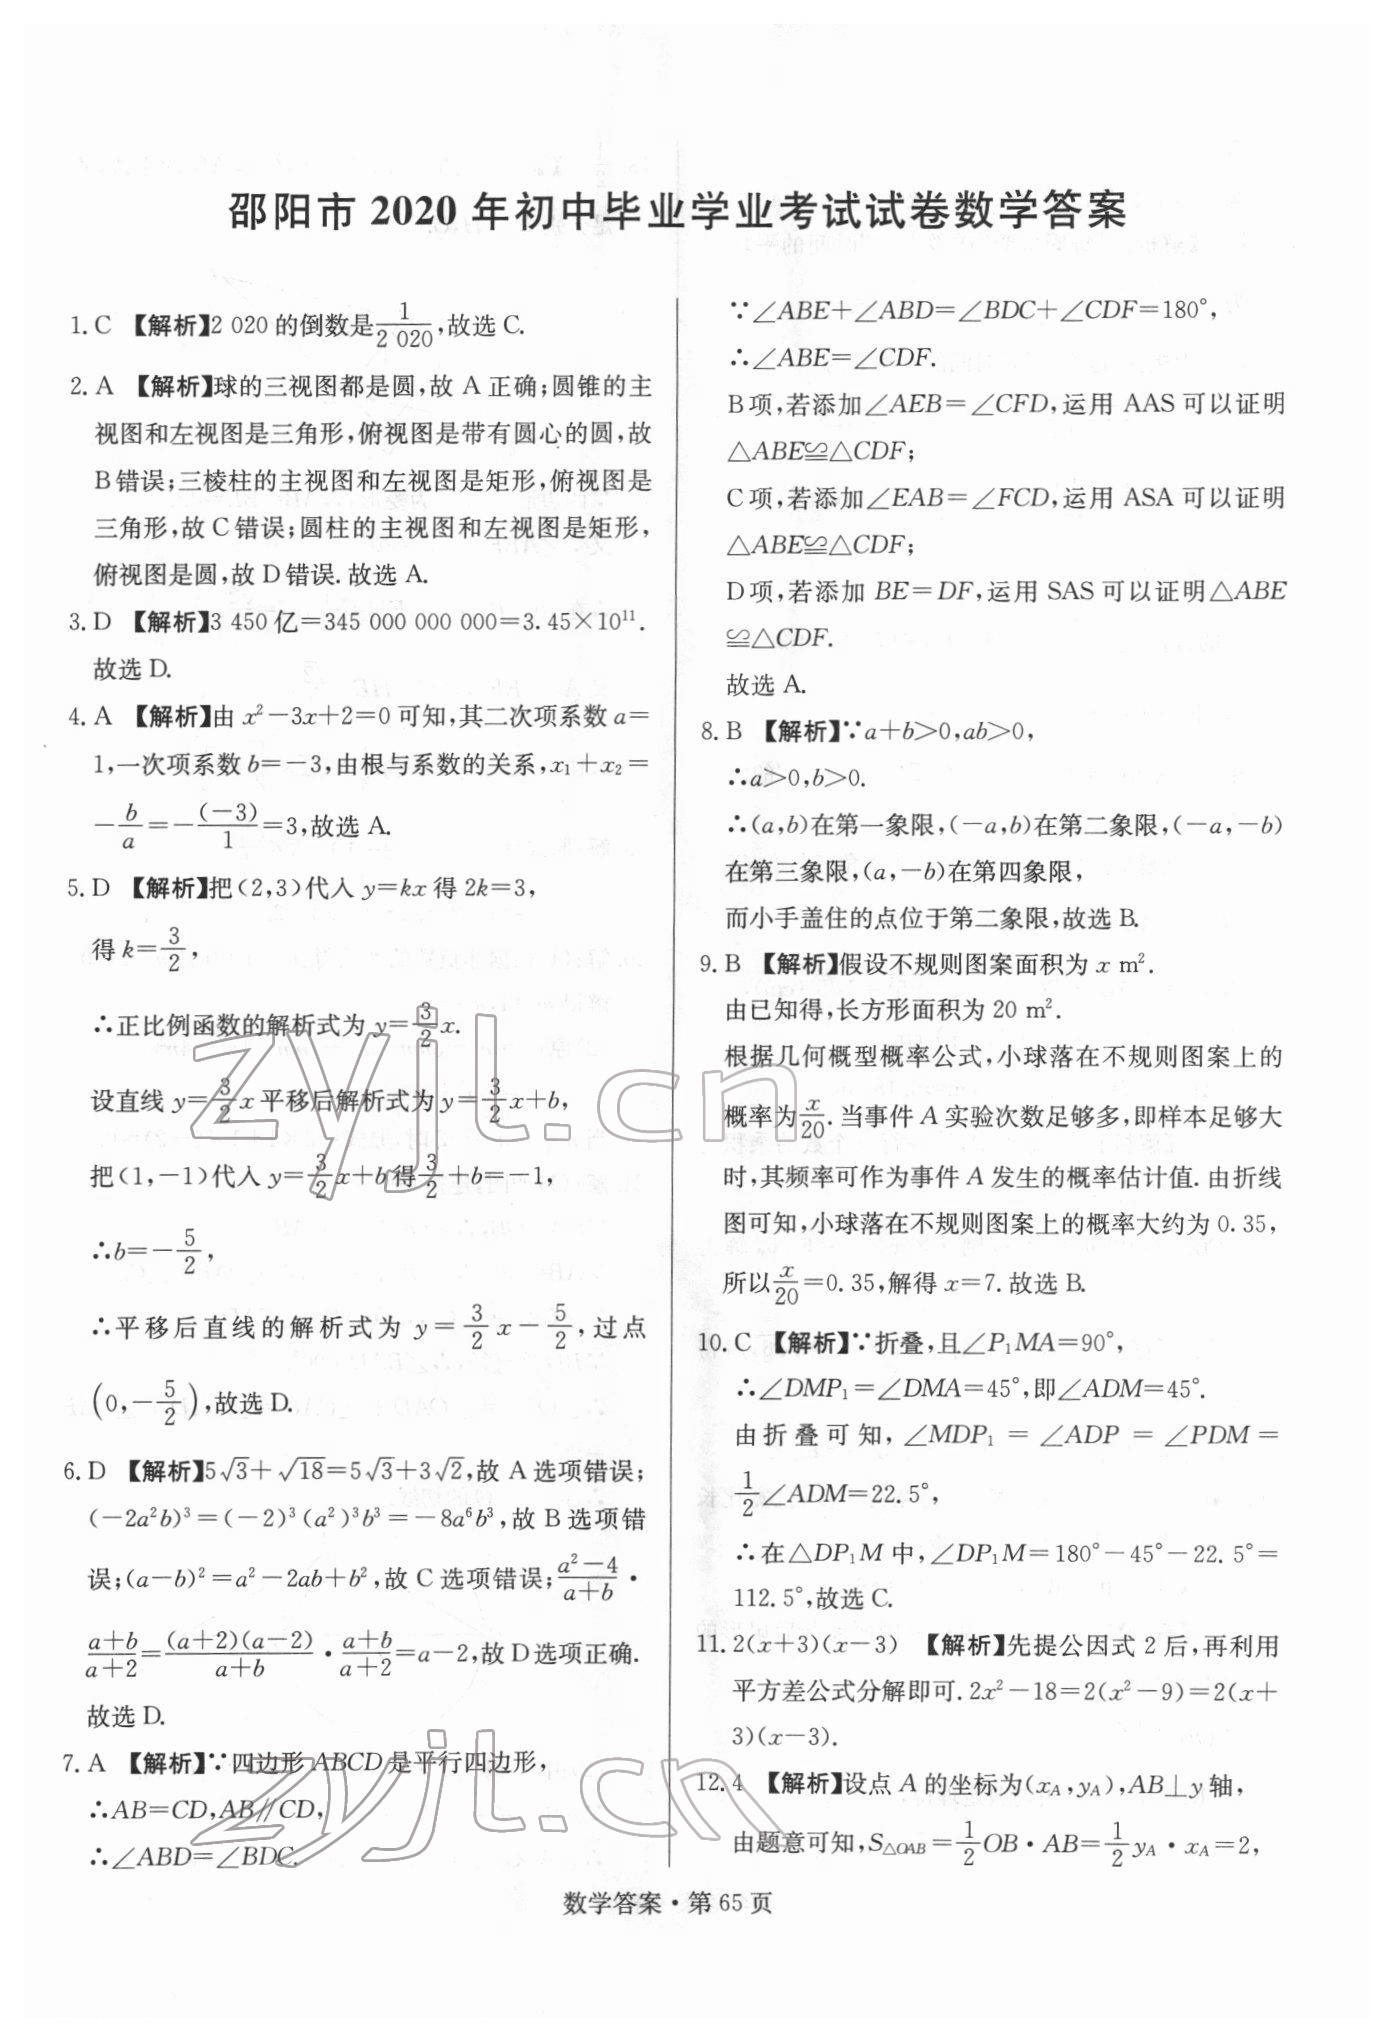 邵阳市 2020 年初中毕业学业考试试卷数学答案
1. C 【解析】2 020 的倒数是1/2 020,故选 C.
2. A 【解析】球的三视图都是圆,故 A 正确;圆锥的主
视图和左视图是三角形,俯视图是带有圆心的圆,故
B 错误;三棱柱的主视图和左视图是矩形,俯视图是
三角形,故 C 错误;圆柱的主视图和左视图是矩形,
俯视图是圆,故 D 错误. 故选 A.
3. D 【解析】3 450 亿=345 000 000 000=3.45×10¹¹.
故选 D.
4. A 【解析】由 x²-3x+2=0 可知,其二次项系数 a=
1,一次项系数 b=-3,由根与系数的关系,x₁+x₂=
-b/a=-(-3)/1=3,故选 A.
5. D 【解析】把(2,3)代入 y=kx 得 2k=3,
得 k=3/2,
∴正比例函数的解析式为 y=3/2x.
设直线 y=3/2x 平移后解析式为 y=3/2x+b,
把(1,-1)代入 y=3/2x+b 得3/2+b=-1,
∴b=-5/2,
∴平移后直线的解析式为 y=3/2x-5/2,过点
(0,-5/2),故选 D.
6. D 【解析】5√3+√18=5√3+3√2,故 A 选项错误;
(-2a²b)³=(-2)³(a²)³b³=-8a⁶b³,故 B 选项错
误;(a-b)²=a²-2ab+b²,故 C 选项错误;(a²-4)/(a+b)·
(a+b)/(a+2)=(a+2)(a-2)/(a+b)·(a+b)/(a+2)=a-2,故 D 选项正确.
故选 D.
7. A 【解析】∵四边形 ABCD 是平行四边形,
∴AB=CD,AB∥CD,
∴∠ABD=∠BDC.
∵∠ABE+∠ABD=∠BDC+∠CDF=180°,
∴∠ABE=∠CDF.
B 项,若添加∠AEB=∠CFD,运用 AAS 可以证明
△ABE≌△CDF;
C 项,若添加∠EAB=∠FCD,运用 ASA 可以证明
△ABE≌△CDF;
D 项,若添加 BE=DF,运用 SAS 可以证明△ABE
≌△CDF.
故选 A.
8. B 【解析】∵a+b>0,ab>0,
∴a>0,b>0.
∴(a,b)在第一象限,(-a,b)在第二象限,(-a,-b)
在第三象限,(a,-b)在第四象限,
而小手盖住的点位于第二象限,故选 B.
9. B 【解析】假设不规则图案面积为 x m².
由已知得,长方形面积为 20 m².
根据几何概型概率公式,小球落在不规则图案上的
概率为x/20. 当事件 A 实验次数足够多,即样本足够大
时,其频率可作为事件 A 发生的概率估计值. 由折线
图可知,小球落在不规则图案上的概率大约为 0.35,
所以x/20=0.35,解得 x=7. 故选 B.
10. C 【解析】∵折叠,且∠P₁MA=90°,
∴∠DMP₁=∠DMA=45°,即∠ADM=45°.
由折叠可知,∠MDP₁=∠ADP=∠PDM=
1/2∠ADM=22.5°,
∴在△DP₁M 中,∠DP₁M=180°-45°-22.5°=
112.5°,故选 C.
11. 2(x+3)(x-3) 【解析】先提公因式 2 后,再利用
平方差公式分解即可. 2x²-18=2(x²-9)=2(x+
3)(x-3).
12. 4 【解析】设点 A 的坐标为(xA,yA),AB⊥y 轴,
由题意可知,S△OAB=1/2OB·AB=1/2yA·xA=2,
数学答案·第 65 页
zyjl.cn
zyjl.cn